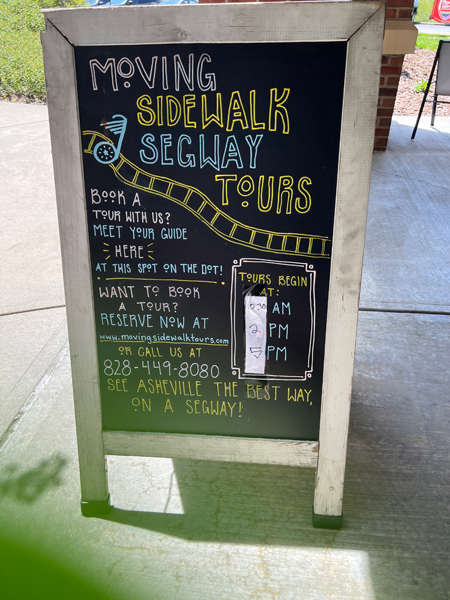 MOVING
SIDEWALK
SEGWAY
TOURS
BOOK A
TOUR WITH US?
MEET YOUR GUIDE
HERE
AT THIS SPOT ON THE DOT!
WANT TO BOOK
A TOUR?
RESERVE NOW AT
www.movingsidewalktours.com
OR CALL US AT
828-449-8080
TOURS BEGIN
AT:
AM
2 PM
5 PM
SEE ASHEVILLE THE BEST WAY,
ON A SEGWAY!